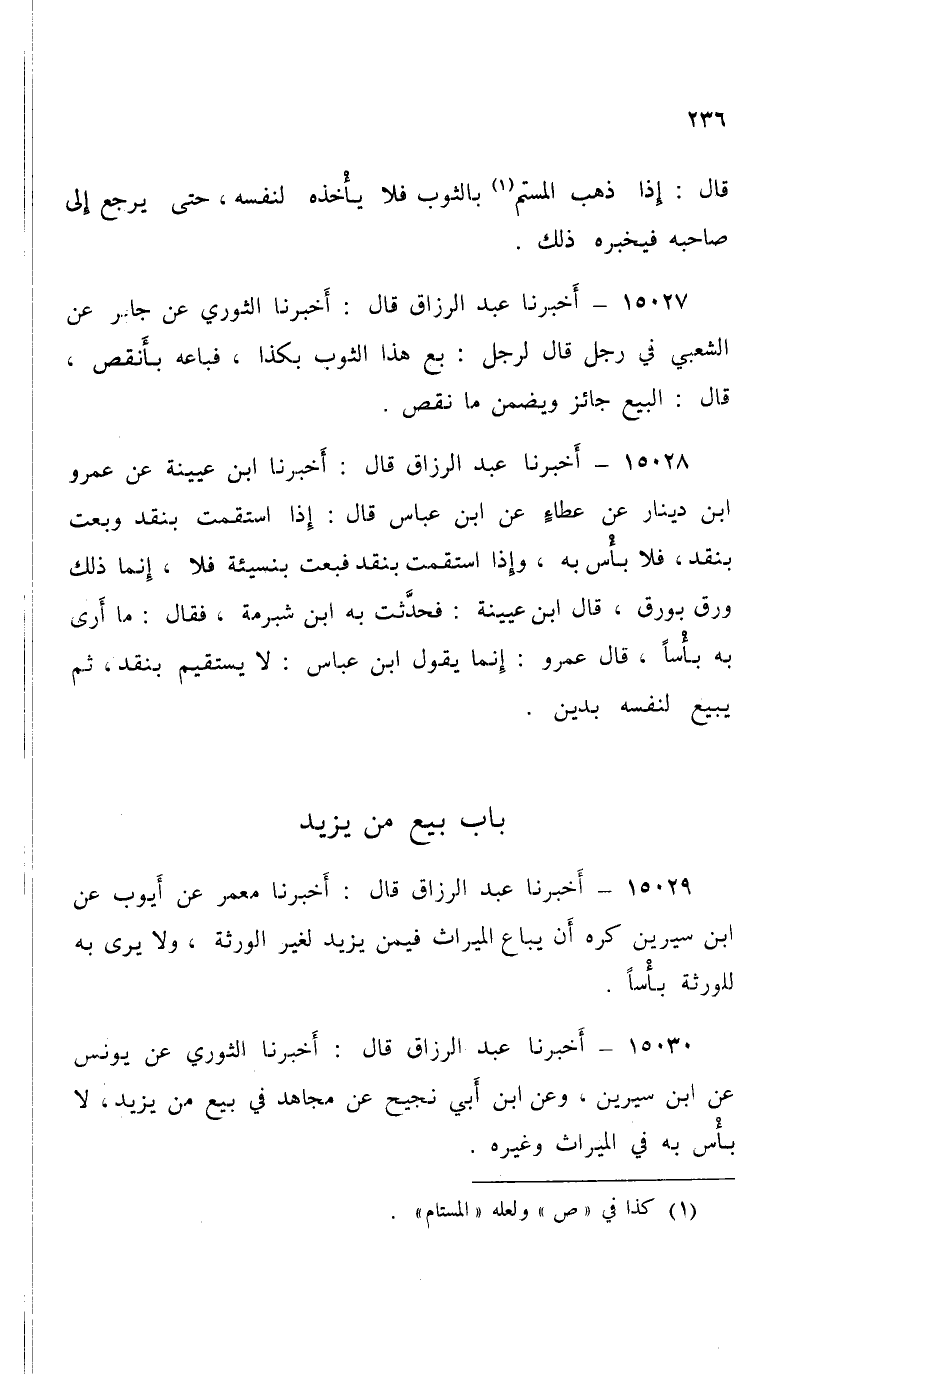 ٢٣٦
قال : إذا ذهب المستم(١) بالثوب فلا يأْخذه لنفسه ، حتى يرجع إلى
صاحبه فيخبره ذلك .
١٥٠٢٧ – أَخبرنا عبد الرزاق قال : أَخبرنا الثوري عن جابر عن
الشعبي في رجل قال لرجل : بع هذا الثوب بكذا ، فباعه بأَنقص ،
قال : البيع جائز ويضمن ما نقص .
١٥٠٢٨ – أَخبرنا عبد الرزاق قال : أَخبرنا ابن عيينة عن عمرو
ابن دينار عن عطاءٍ عن ابن عباس قال : إذا استقمت بنقد وبعت
بنقد ، فلا بأْس به ، وإذا استقمت بنقد فبعت بنسيئة فلا ، إنما ذلك
ورق بورق ، قال ابن عيينة : فحدَّثت به ابن شبرمة ، فقال : ما أَرى
به بأْساً ، قال عمرو : إنما يقول ابن عباس : لا يستقيم بنقد ، ثم
يبيع لنفسه بدين .
باب بيع من يزيد
١٥٠٢٩ – أَخبرنا عبد الرزاق قال : أَخبرنا معمر عن أَيوب عن
ابن سيرين كره أَن يباع الميراث فيمن يزيد لغير الورثة ، ولا يرى به
للورثة بأْساً .
١٥٠٣٠ – أَخبرنا عبد الرزاق قال : أَخبرنا الثوري عن يونس
عن ابن سيرين ، وعن ابن أَبي نجيح عن مجاهد في بيع من يزيد ، لا
بأْس به في الميراث وغيره .
(١) كذا في « ص » ولعله « المستام » .